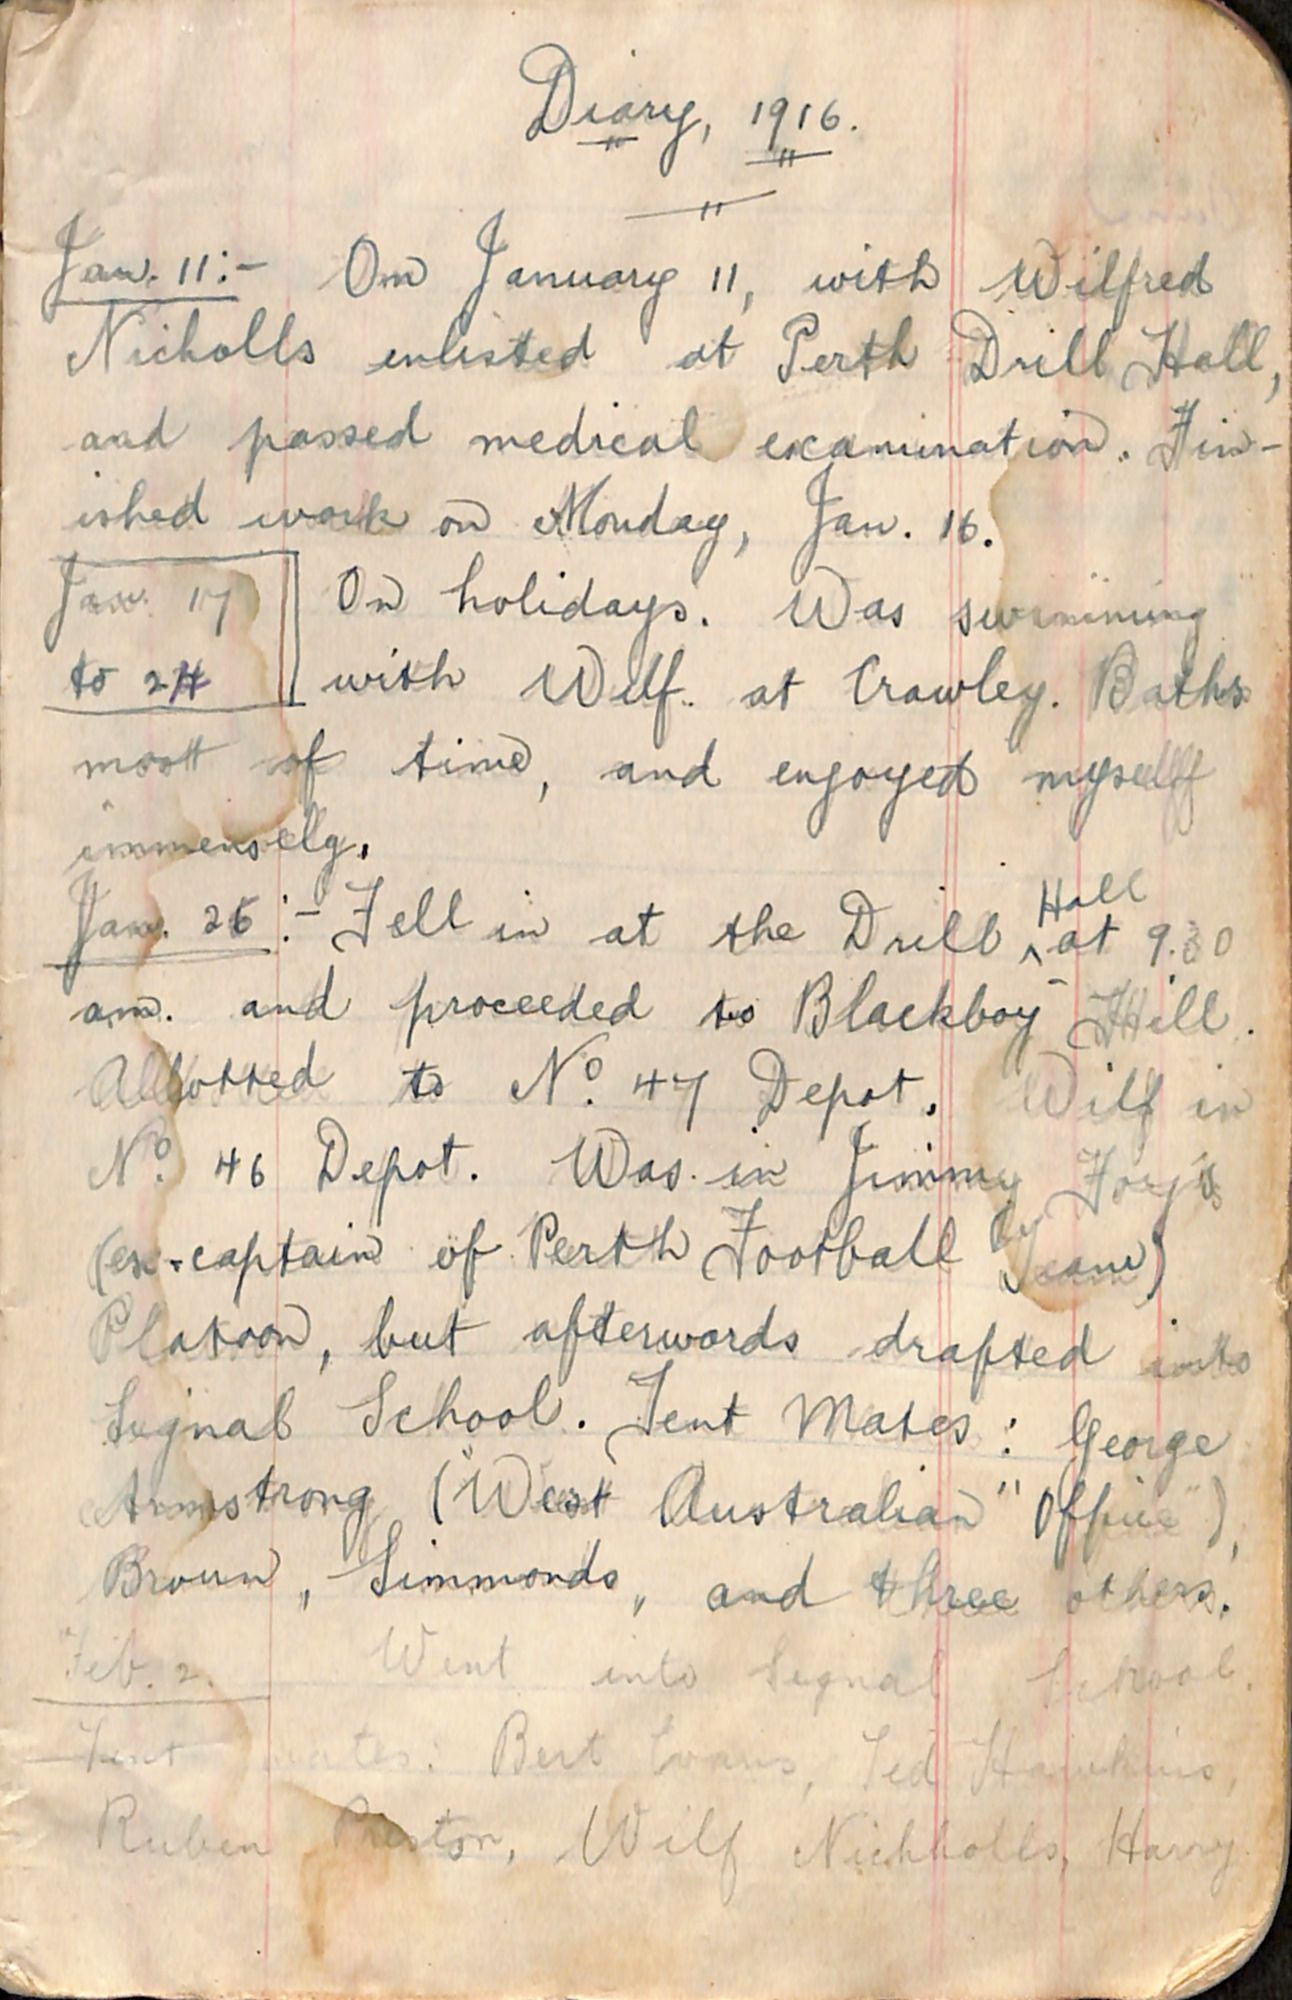 Diary, 1916.
Jan. 11:- On January 11, with Wilfred
Nicholls enlisted at Perth Drill Hall,
and passed medical examination. Fin-
ished work on Monday, Jan. 16.
Jan. 17 On holidays. Was swimming
to 24 with Wilf. at Crawley. Baths
most of time, and enjoyed myself
immensely.
Jan. 25:- Fell in at the Drill Hall at 9.30
am. and proceeded to Blackboy Hill.
Allotted to No. 47 Depot. Wilf in
No. 46 Depot. Was in Jimmy Foy's
(ex-captain of Perth Football Team)
Platoon, but afterwards drafted into
Signal School. Tent Mates: George
Armstrong ("West Australian" Office"),
Broun, Simmonds, and three others.
Feb. 2. Went into Signal School.
Tent mates: Bert Evans, Ted Hawkins,
Ruben Preston, Wilf Nichholls, Harry